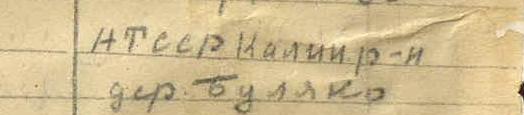 НТССР Калиир-н
дер. Буляко